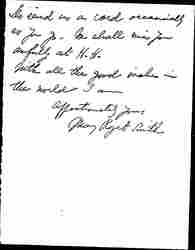 Do send us a card occasionally
as you go. We shall miss you
awfully at H.H.
With all the good wishes in
the world I am
Affectionately yours
Mary